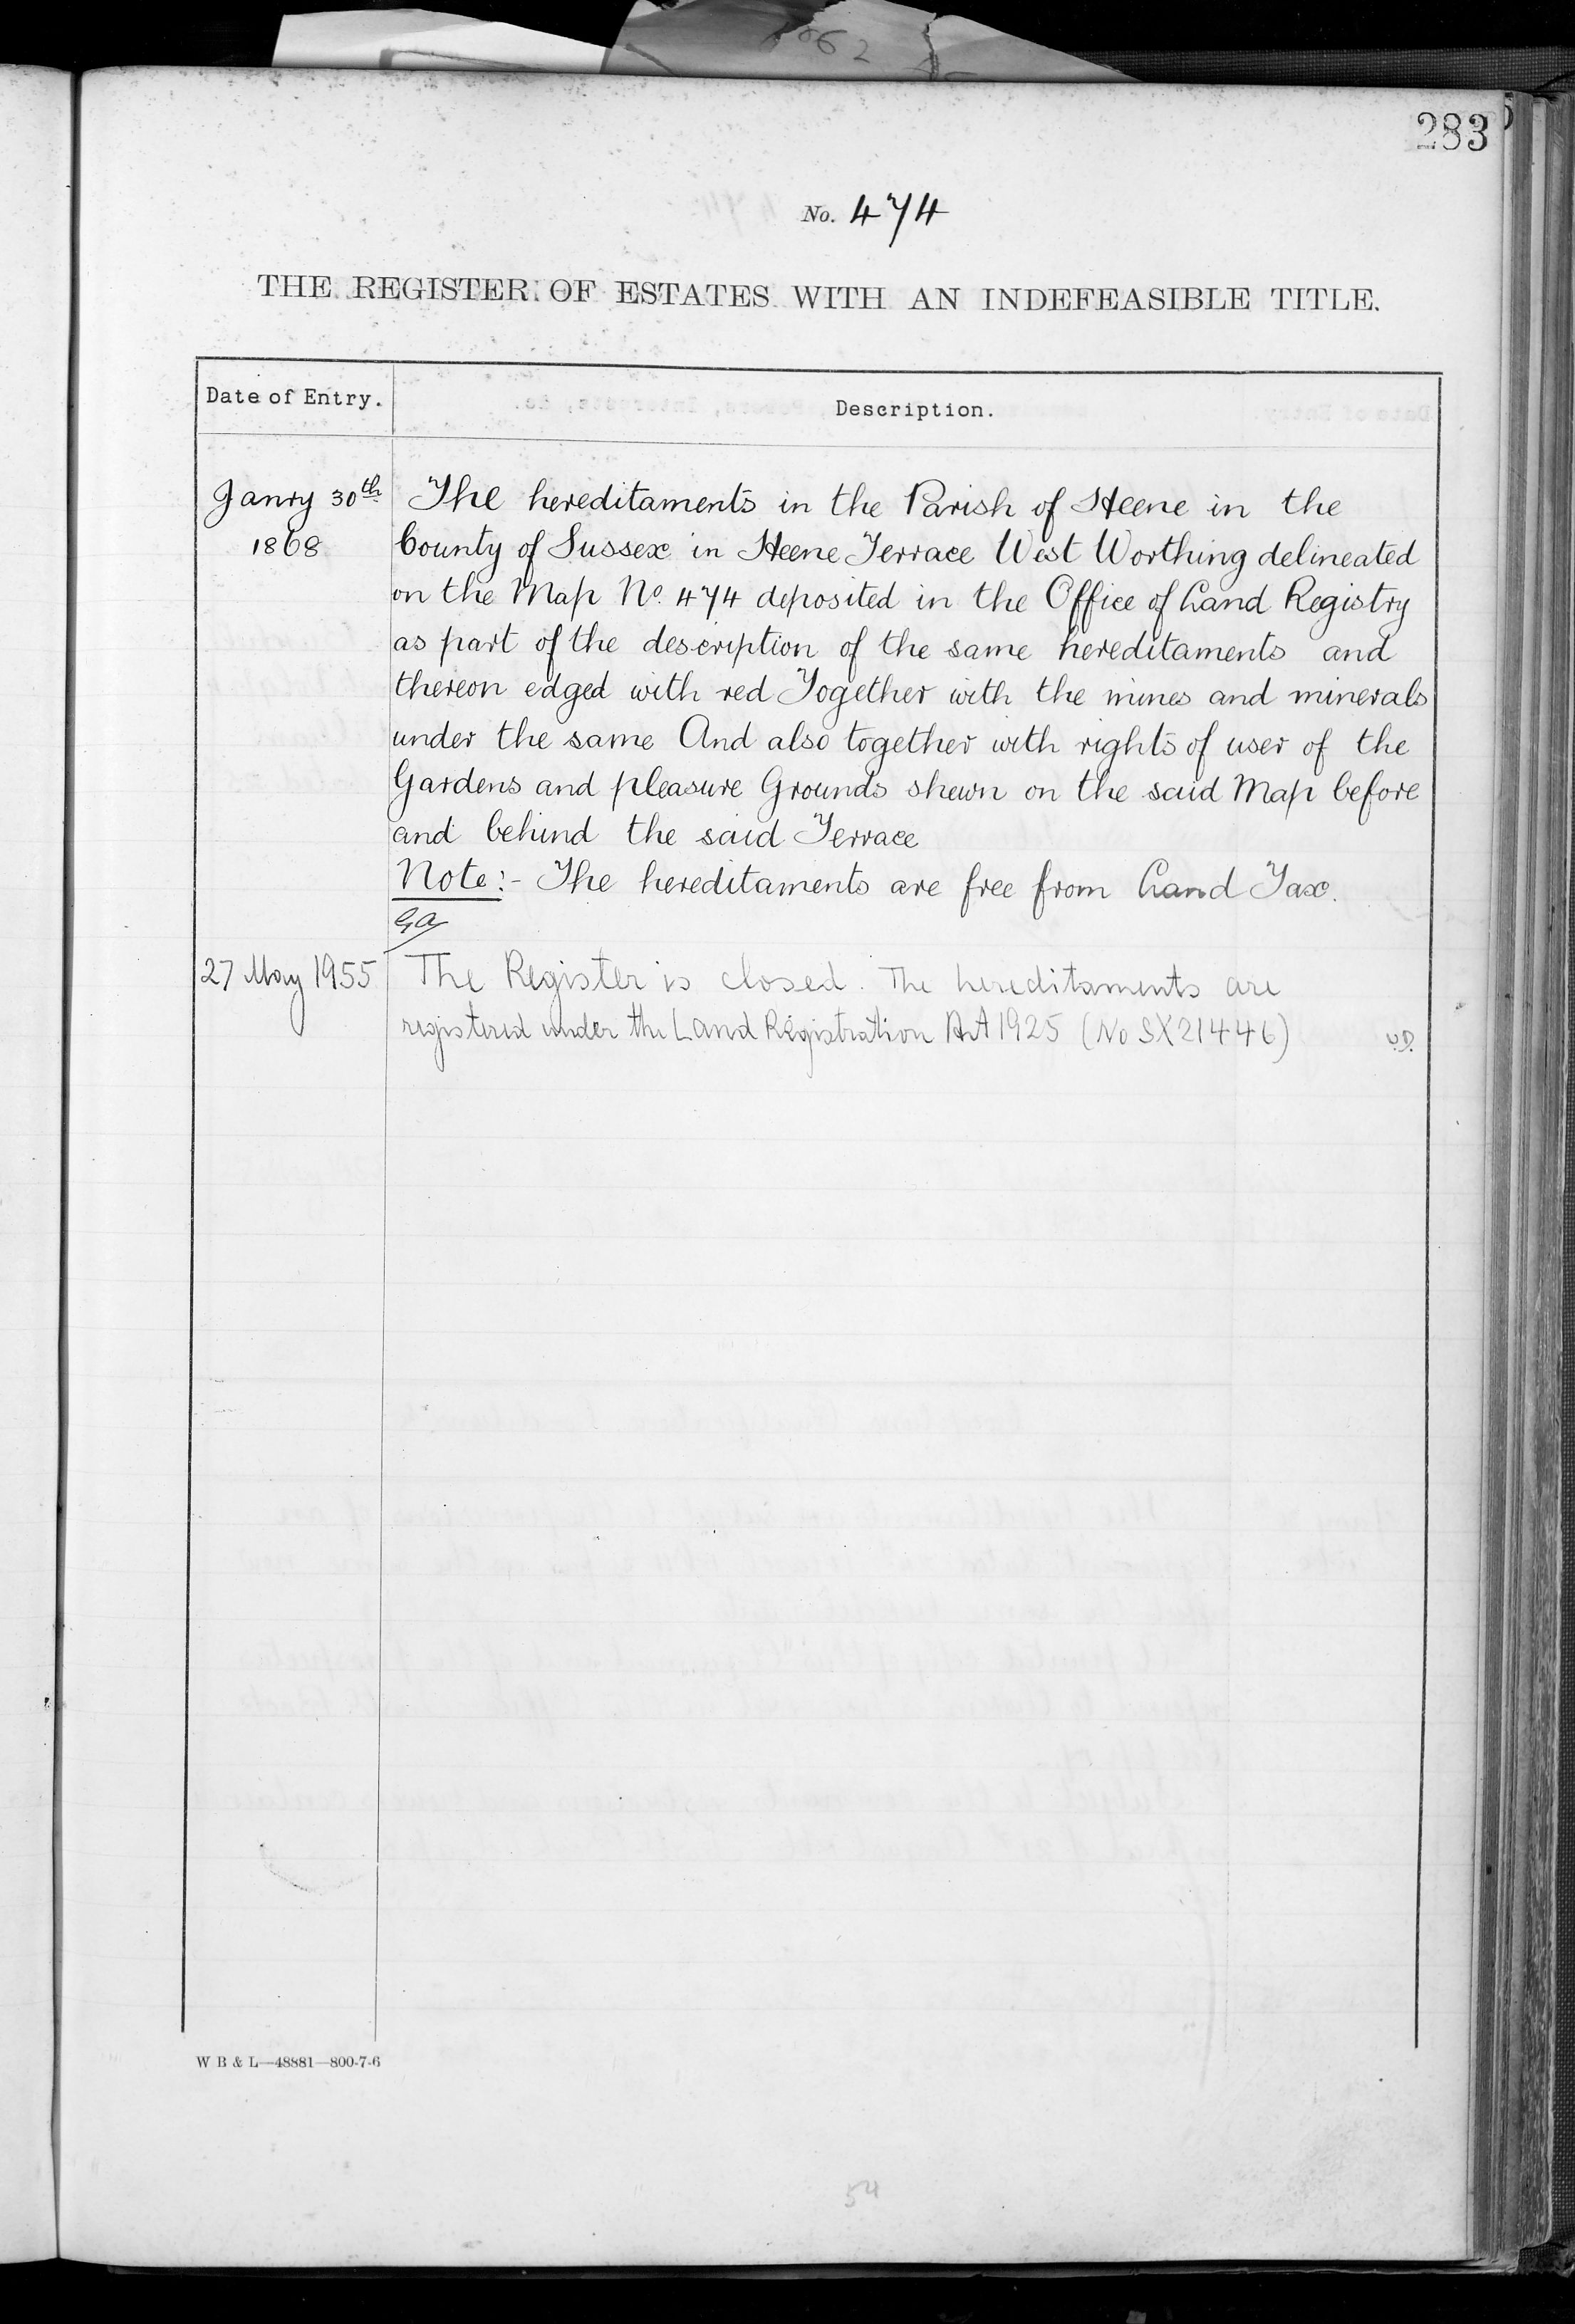 283
No. 474
THE REGISTER OF ESTATES WITH AN INDEFEASIBLE TITLE.
Date of Entry.
Description.
Janry 30th
1868
The hereditaments in the Parish of Heene in the
County of Sussex in Heene Terrace West Worthing delineated
on the Map No. 474 deposited in the Office of Land Registry
as part of the description of the same hereditaments and
thereon edged with red Together with the mines and minerals
under the same And also together with rights of user of the
Gardens and pleasure Grounds shewn on the said Map before
and behind the said Terrace
Note:- The hereditaments are free from Land Tax.
27 May 1955
The Register is closed. The hereditaments are
registered under the Land Registration Act 1925 (No SX21446)
W B & L—48881—800-7-6
54